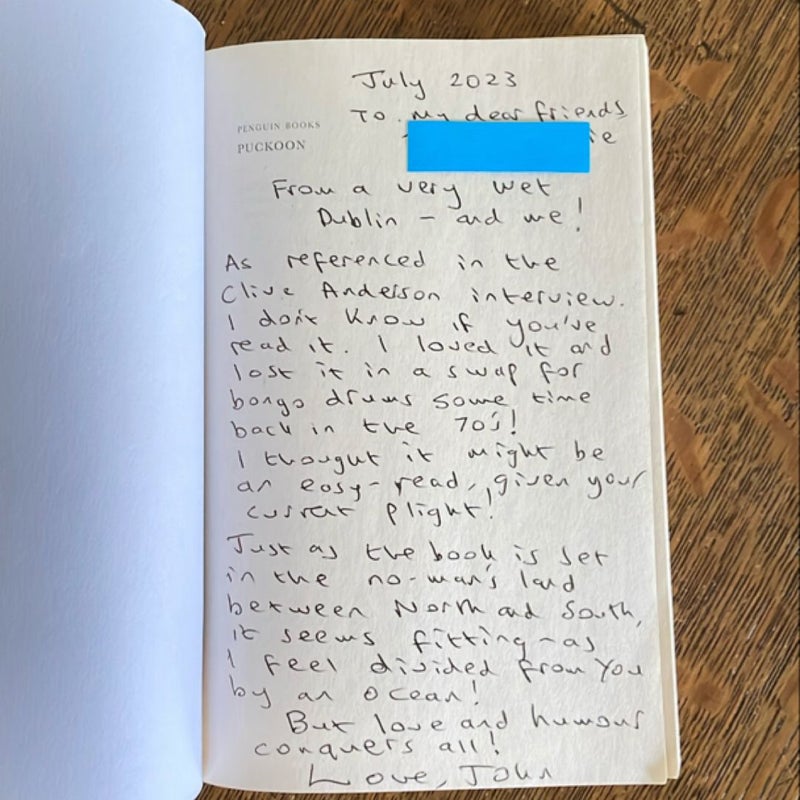 July 2023
To my dear friends
ie
PENGUIN BOOKS
PUCKOON
From a very wet
Dublin – and me!
As referenced in the
Clive Anderson interview.
I don't know if you've
read it. I loved it and
lost it in a swap for
bongo drums some time
back in the 70's!
I thought it might be
an easy-read, given your
current plight!
Just as the book is set
in the no-man's land
between North and South,
it seems fitting – as
I feel divided from you
by an ocean!
But love and humour
conquers all!
Love, John